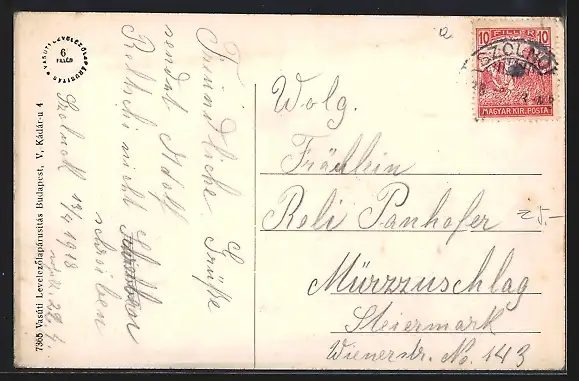 VASUTI LEVELEZŐLAPÁRUSITÁS
6
7365 Vasúti Levelezőlapárusitás Budapest, V. Kádár-u 4
Szolnok 13/4 1918
22. 4.
Freundliche Grüße
sendet Adolf
nicht
schreiben
10 FILLER 10
MAGYAR KIR. POSTA
SZOLNOK
Wolg.
Fräulein
Roli Panhofer
Mürzzuschlag
Steiermark
Wienerstr. No. 143
25.-